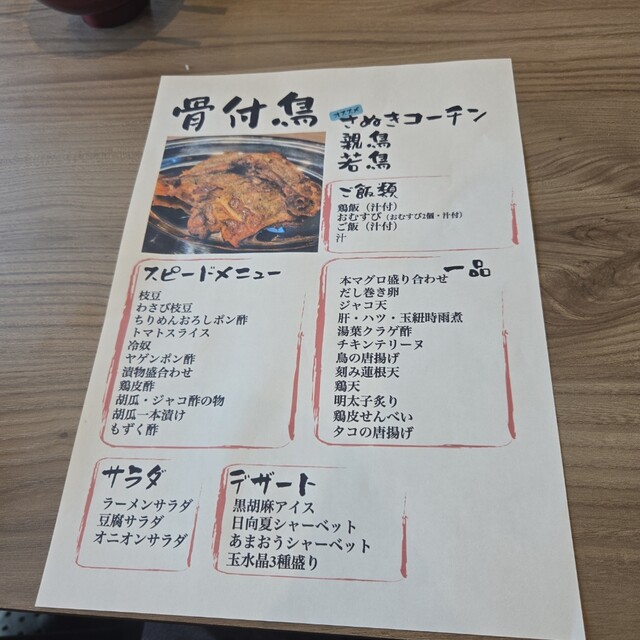 骨付鳥
オススメ
さぬきコーチン
親鳥
若鳥
ご飯類
鶏飯（汁付）
おむすび（おむすび2個・汁付）
ご飯（汁付）
汁
スピードメニュー
枝豆
わさび枝豆
ちりめんおろしポン酢
トマトスライス
冷奴
ヤゲンポン酢
漬物盛合わせ
鶏皮酢
胡瓜・ジャコ酢の物
胡瓜一本漬け
もずく酢
一品
本マグロ盛り合わせ
だし巻き卵
ジャコ天
肝・ハツ・玉紐時雨煮
湯葉クラゲ酢
チキンテリーヌ
鳥の唐揚げ
刻み蓮根天
鶏天
明太子炙り
鶏皮せんべい
タコの唐揚げ
サラダ
ラーメンサラダ
豆腐サラダ
オニオンサラダ
デザート
黒胡麻アイス
日向夏シャーベット
あまおうシャーベット
玉水晶3種盛り